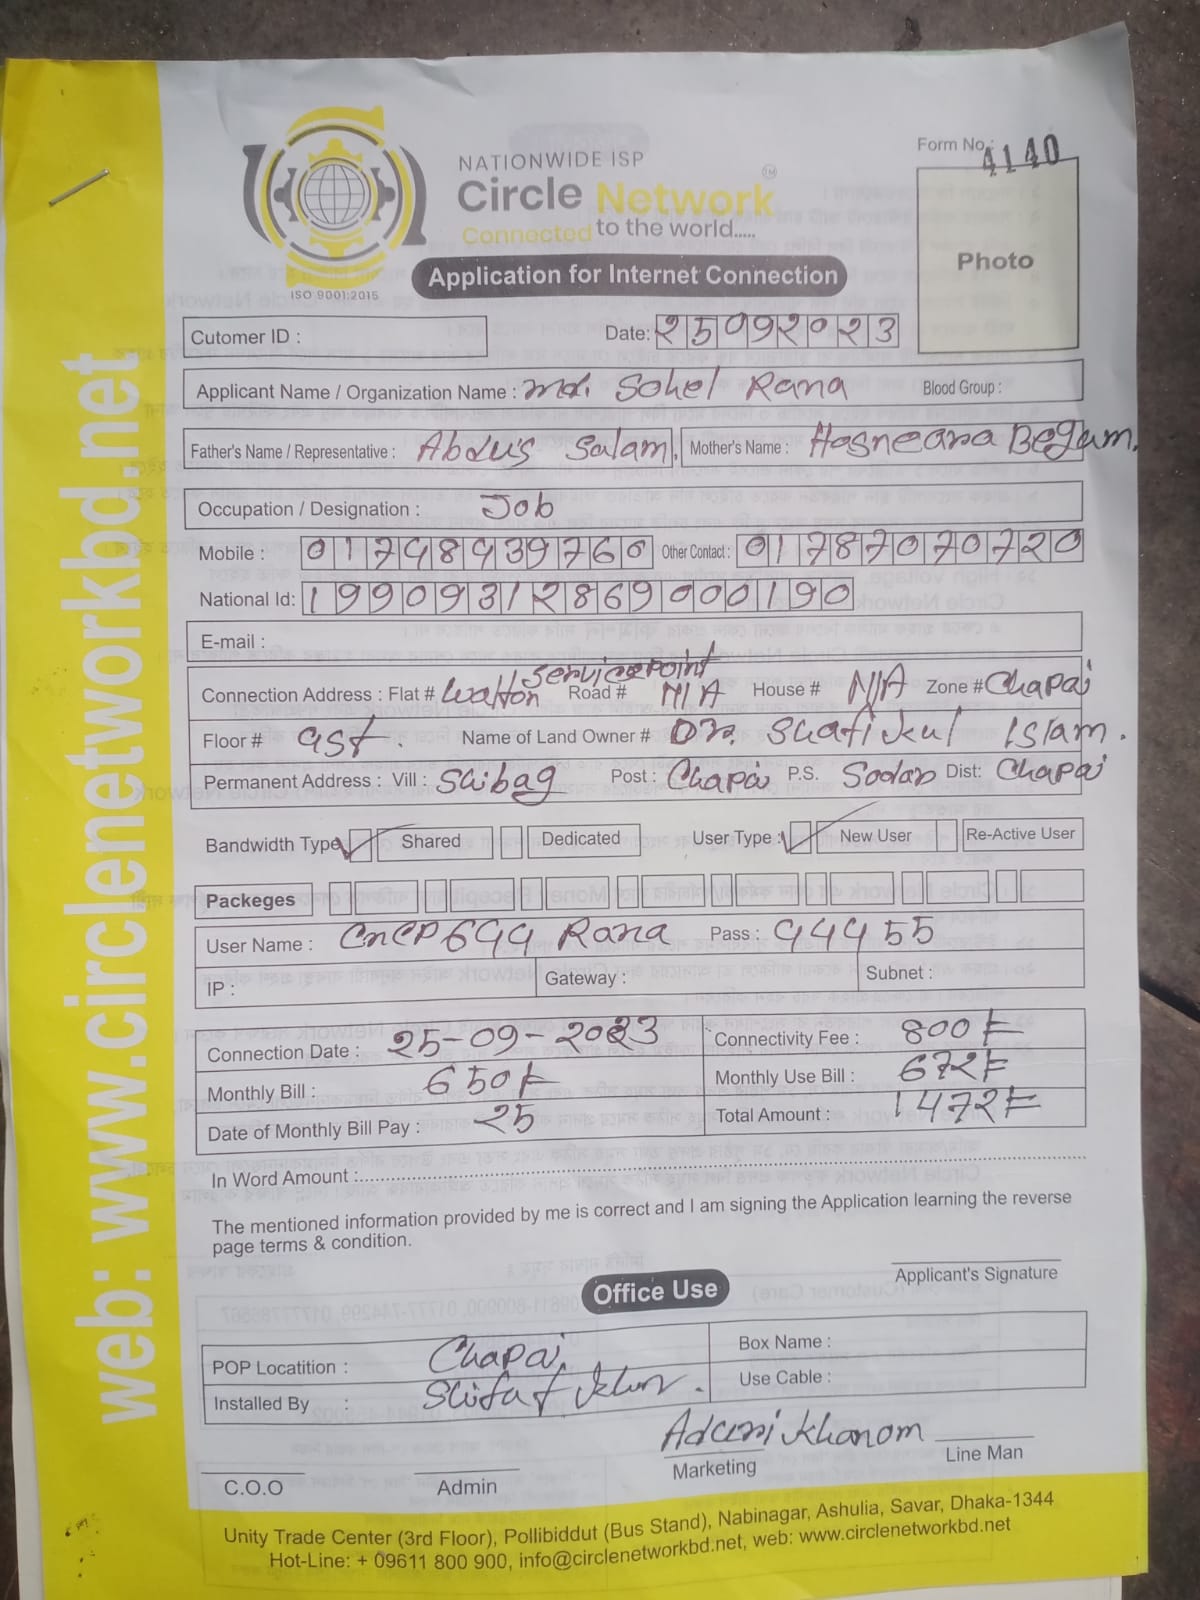 web: www.circlenetworkbd.net
Form No.: 4140
NATIONWIDE ISP
Circle Network
Connected to the world.....
ISO 9001:2015
Application for Internet Connection
Photo
Cutomer ID :
Date: 25092023
Applicant Name / Organization Name : Md. Sohel Rana Blood Group :
Father's Name / Representative : Abdus Salam. Mother's Name : Hasneara Begum.
Occupation / Designation : Job
Mobile : Other Contact : 01787070720
National Id: 19909312869000190
E-mail :
Service point
Connection Address : Flat # Walton Road # N/A House # N/A Zone # Chapai
Floor # Name of Land Owner # Dr. Shafikul Islam.
Permanent Address : Vill : Shibag Post : Chapai P.S. Sadar Dist: Chapai
Bandwidth Type Shared Dedicated User Type : New User Re-Active User
Packeges
User Name : CnCP644 Rana Pass : 44455
IP : Gateway : Subnet :
Connection Date : 25-09-2023 Connectivity Fee : 800/=
Monthly Bill : 650/= Monthly Use Bill : 672/=
Date of Monthly Bill Pay : 25 Total Amount : 1472/=
In Word Amount :
The mentioned information provided by me is correct and I am signing the Application learning the reverse
page terms & condition.
Applicant's Signature
Office Use
POP Locatition : Chapai Box Name :
Installed By : Use Cable :
Khanom
C.O.O Admin Marketing Line Man
Unity Trade Center (3rd Floor), Pollibiddut (Bus Stand), Nabinagar, Ashulia, Savar, Dhaka-1344
Hot-Line: + 09611 800 900, info@circlenetworkbd.net, web: www.circlenetworkbd.net